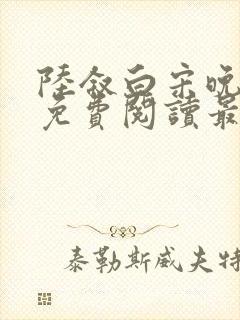 陸敘白宋晚
免費閱讀最
泰勒斯威夫特